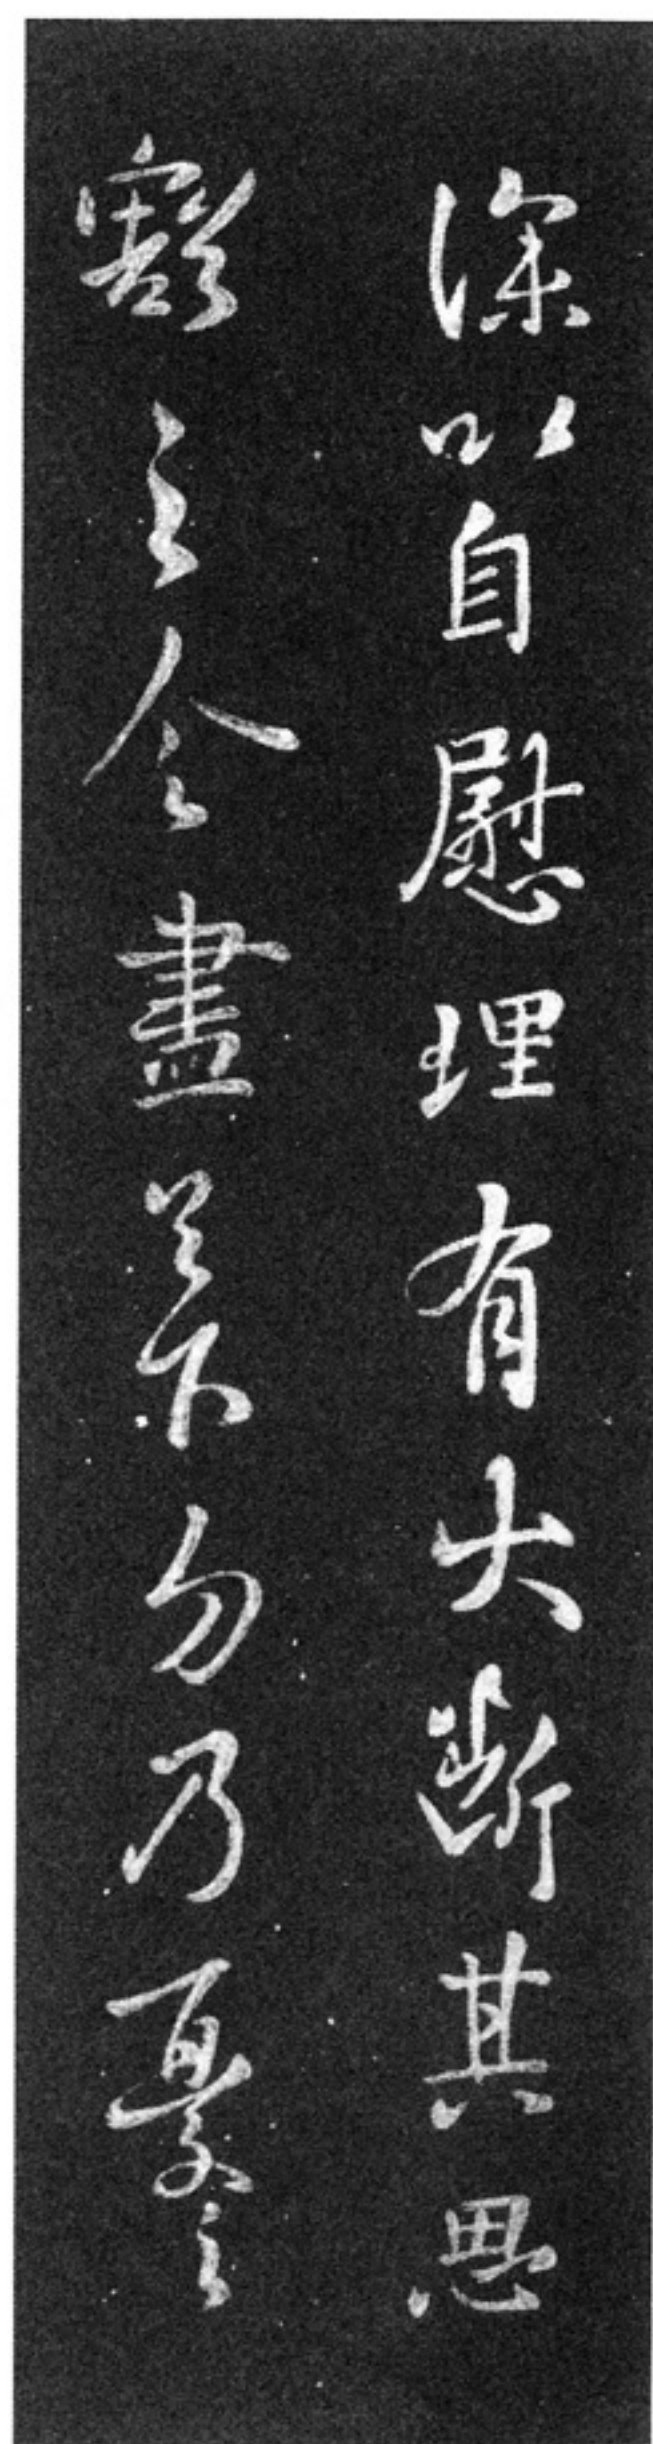 深以自慰理有大斷其思
豁之令盡足下勿乃憂之